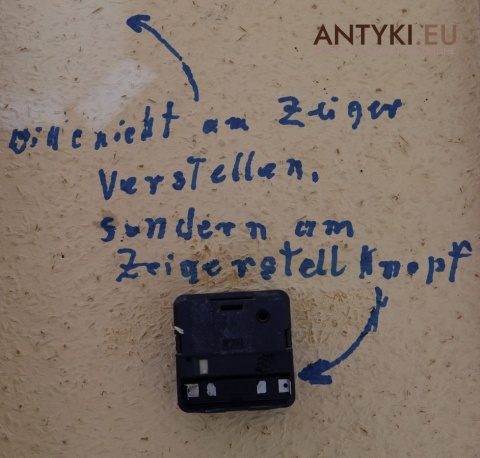 ANTYKI.EU
Bitte nicht am Zeiger
Verstellen,
sondern am
Zeigerstell Knopf